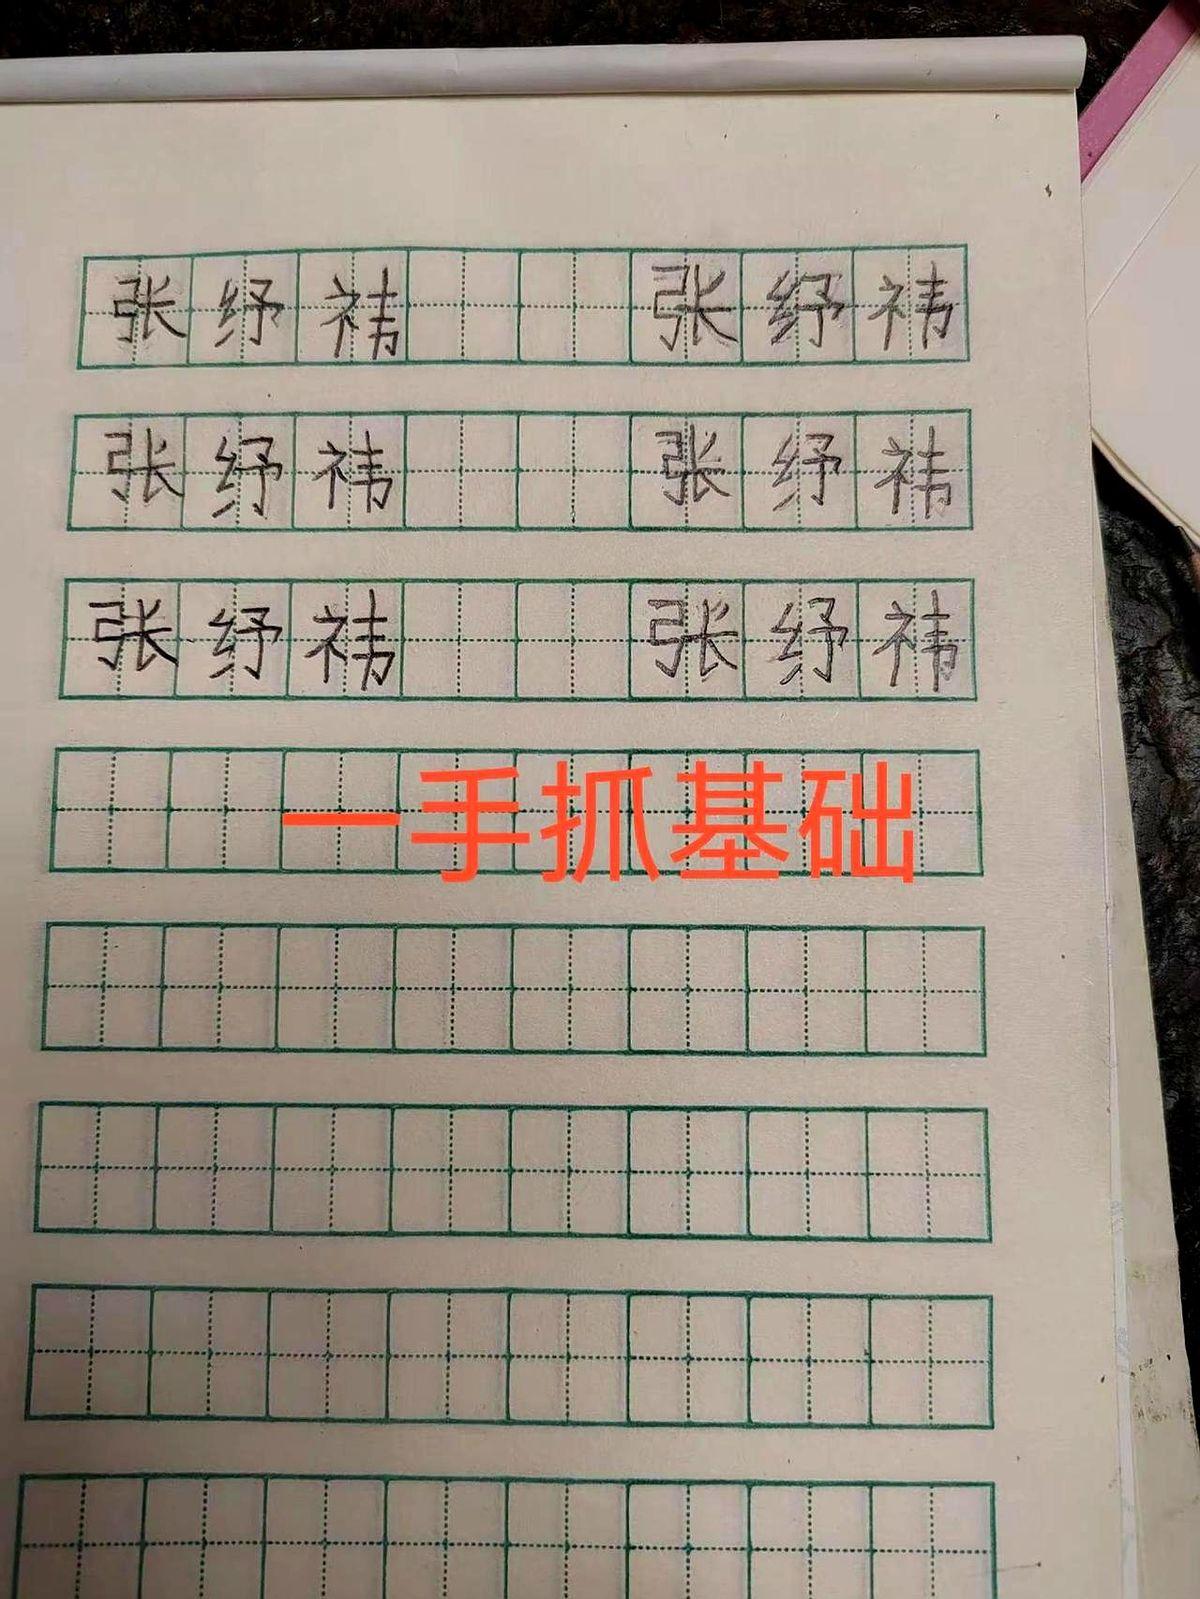 张纾祎 张纾祎
张纾祎 张纾祎
张纾祎 张纾祎
一手抓基础